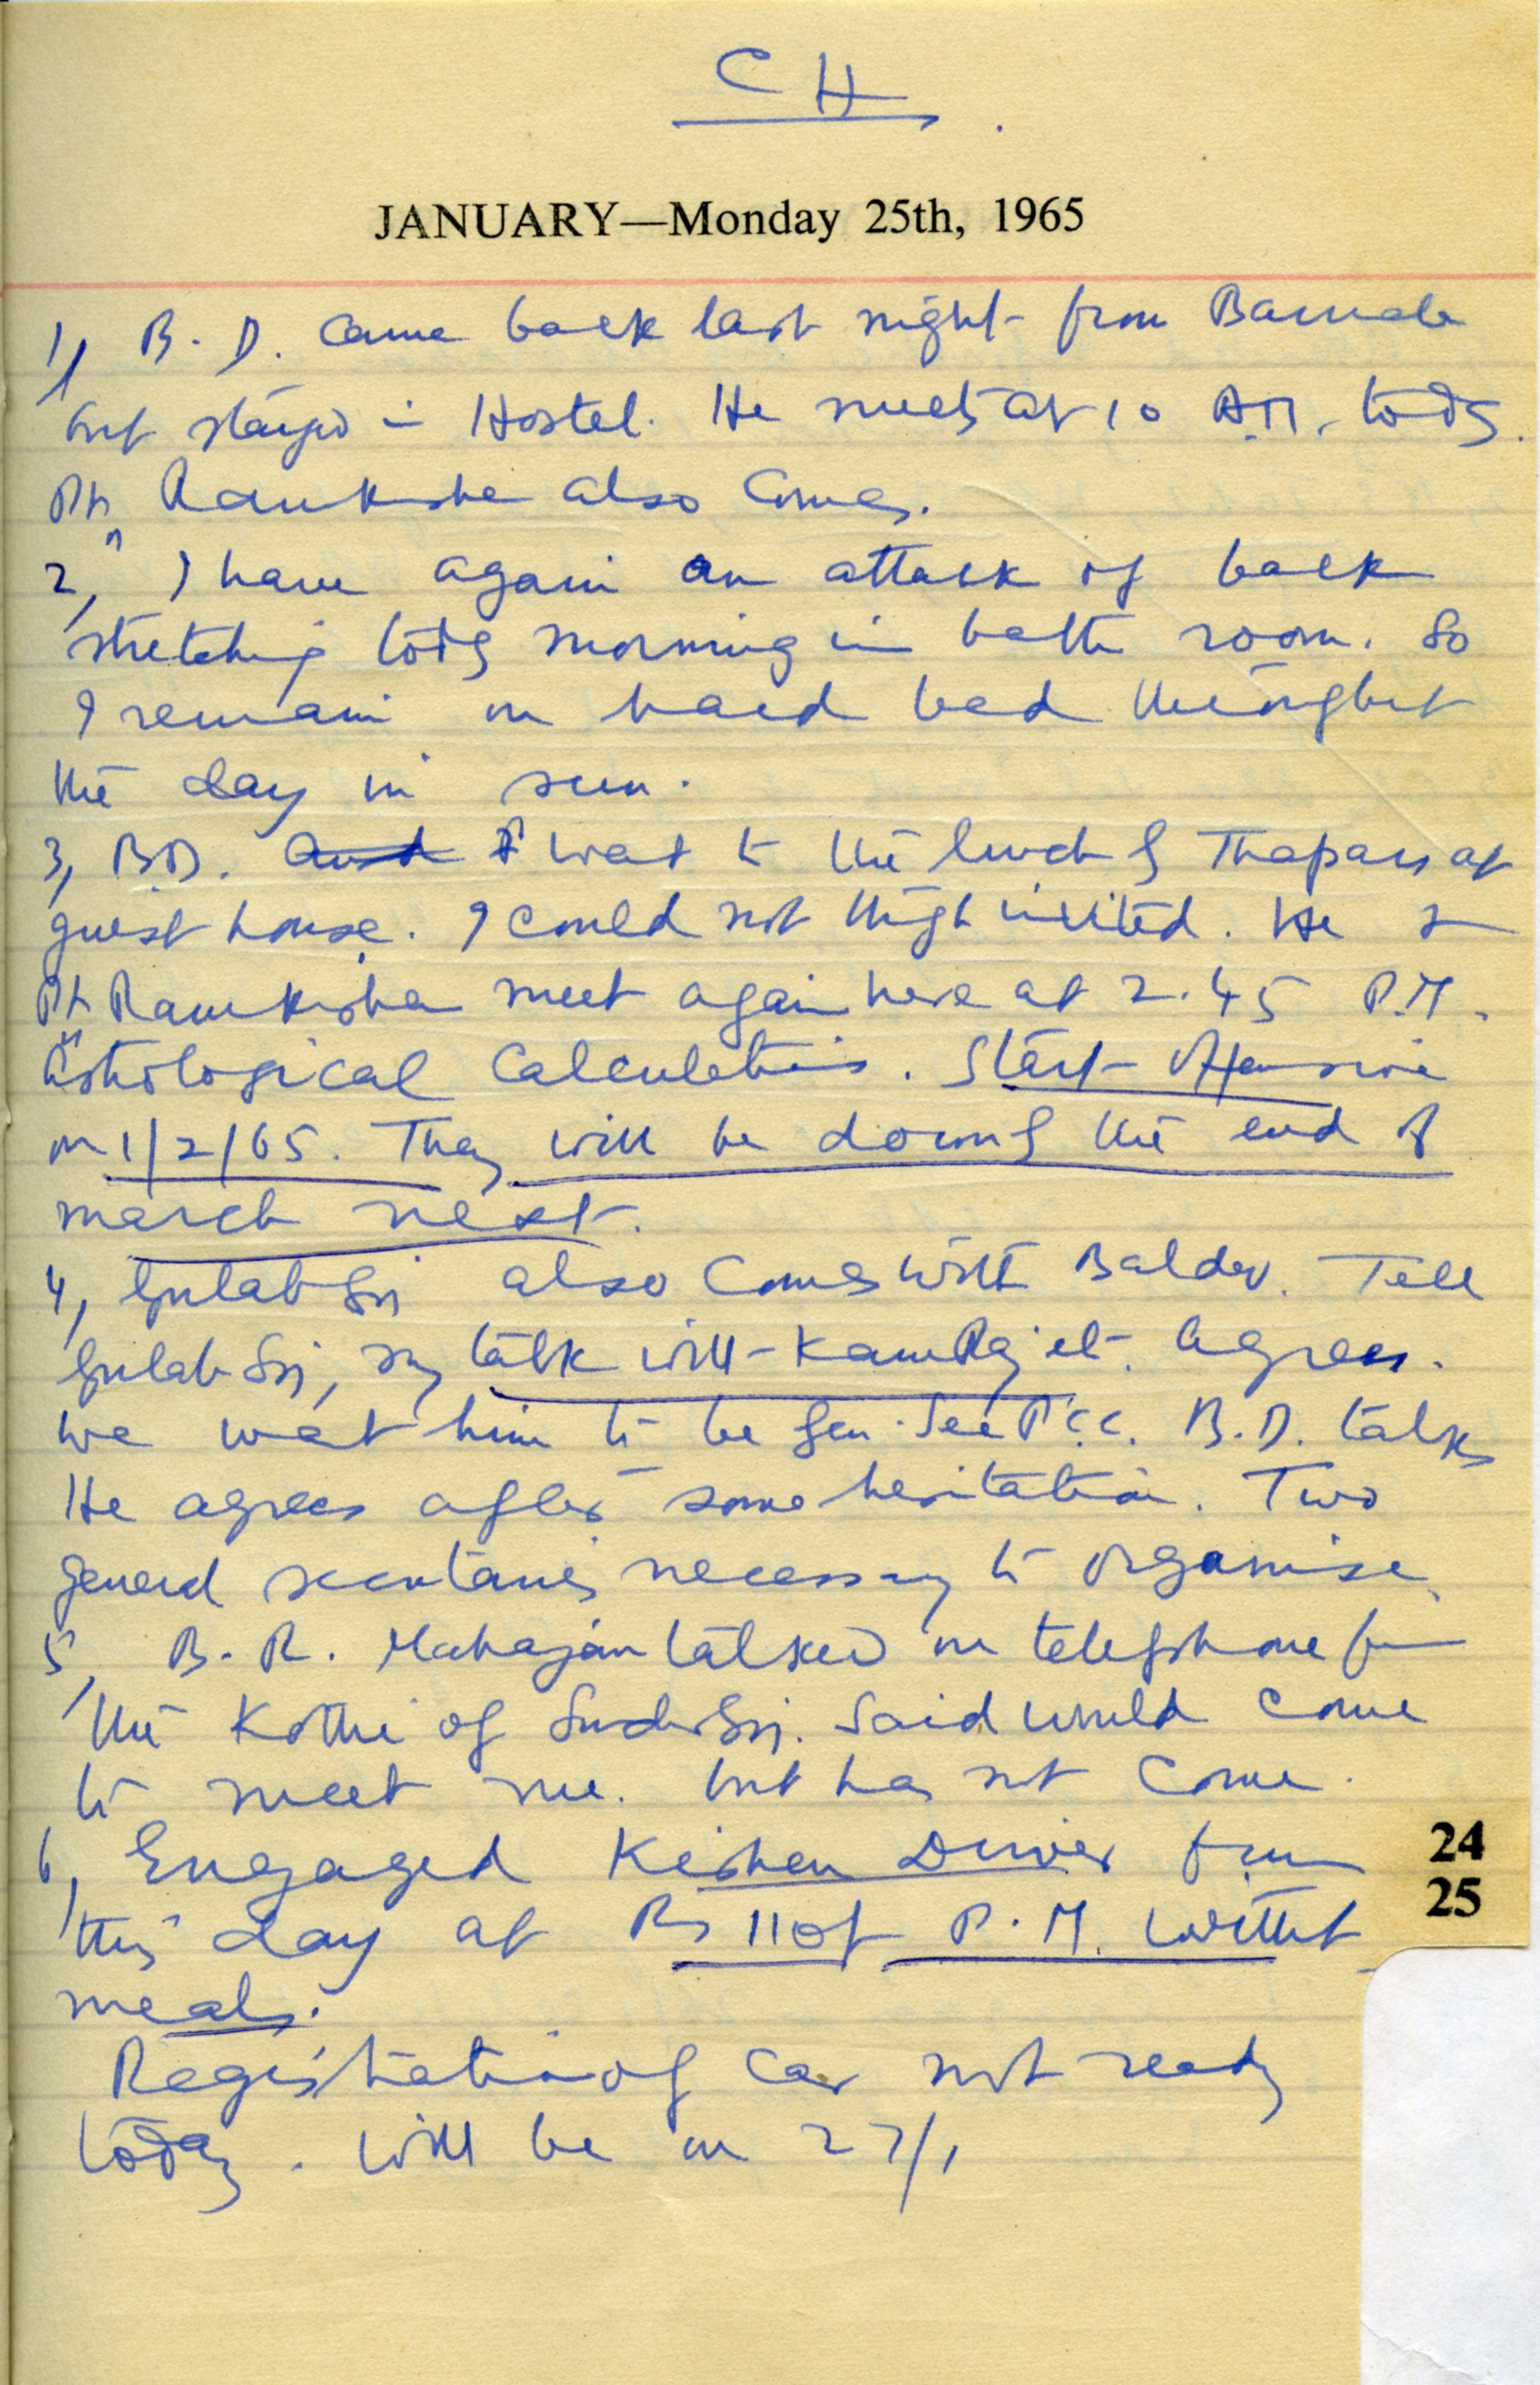 CH
JANUARY—Monday 25th, 1965
1, B. D. came back last night from Barnala
but stayed in Hostel. He meets at 10 A.M. today.
Pt. Ramkishen also comes.
2, I have again an attack of back
stretching today morning in bath room. So
I remain on hard bed throughout
the day in sun.
3, B.D. went to the lunch of Thapars at
guest house. I could not though invited. He &
Pt Ramkishen meet again here at 2.45 P.M.
Astrological Calculations. Start offensive
on 1/2/65. They will be down by the end of
march next.
4, Gulab Sgj also comes with Baldev. Tell
Gulab Sgj, my talk with Kamraj etc. Agrees.
We want him to be Gen. Sec P.C.C. B.D. talks
He agrees after some hesitation. Two
general secretaries necessary to organise.
5, B. R. Mahajan talked on telephone from
the Kothi of Sgj. Said would come
to meet me. but has not come.
6, Engaged Kishen Driver from
this day at Rs 110/ P.M. without
meals.
Registration of car not ready
today. Will be on 27/1
24
25